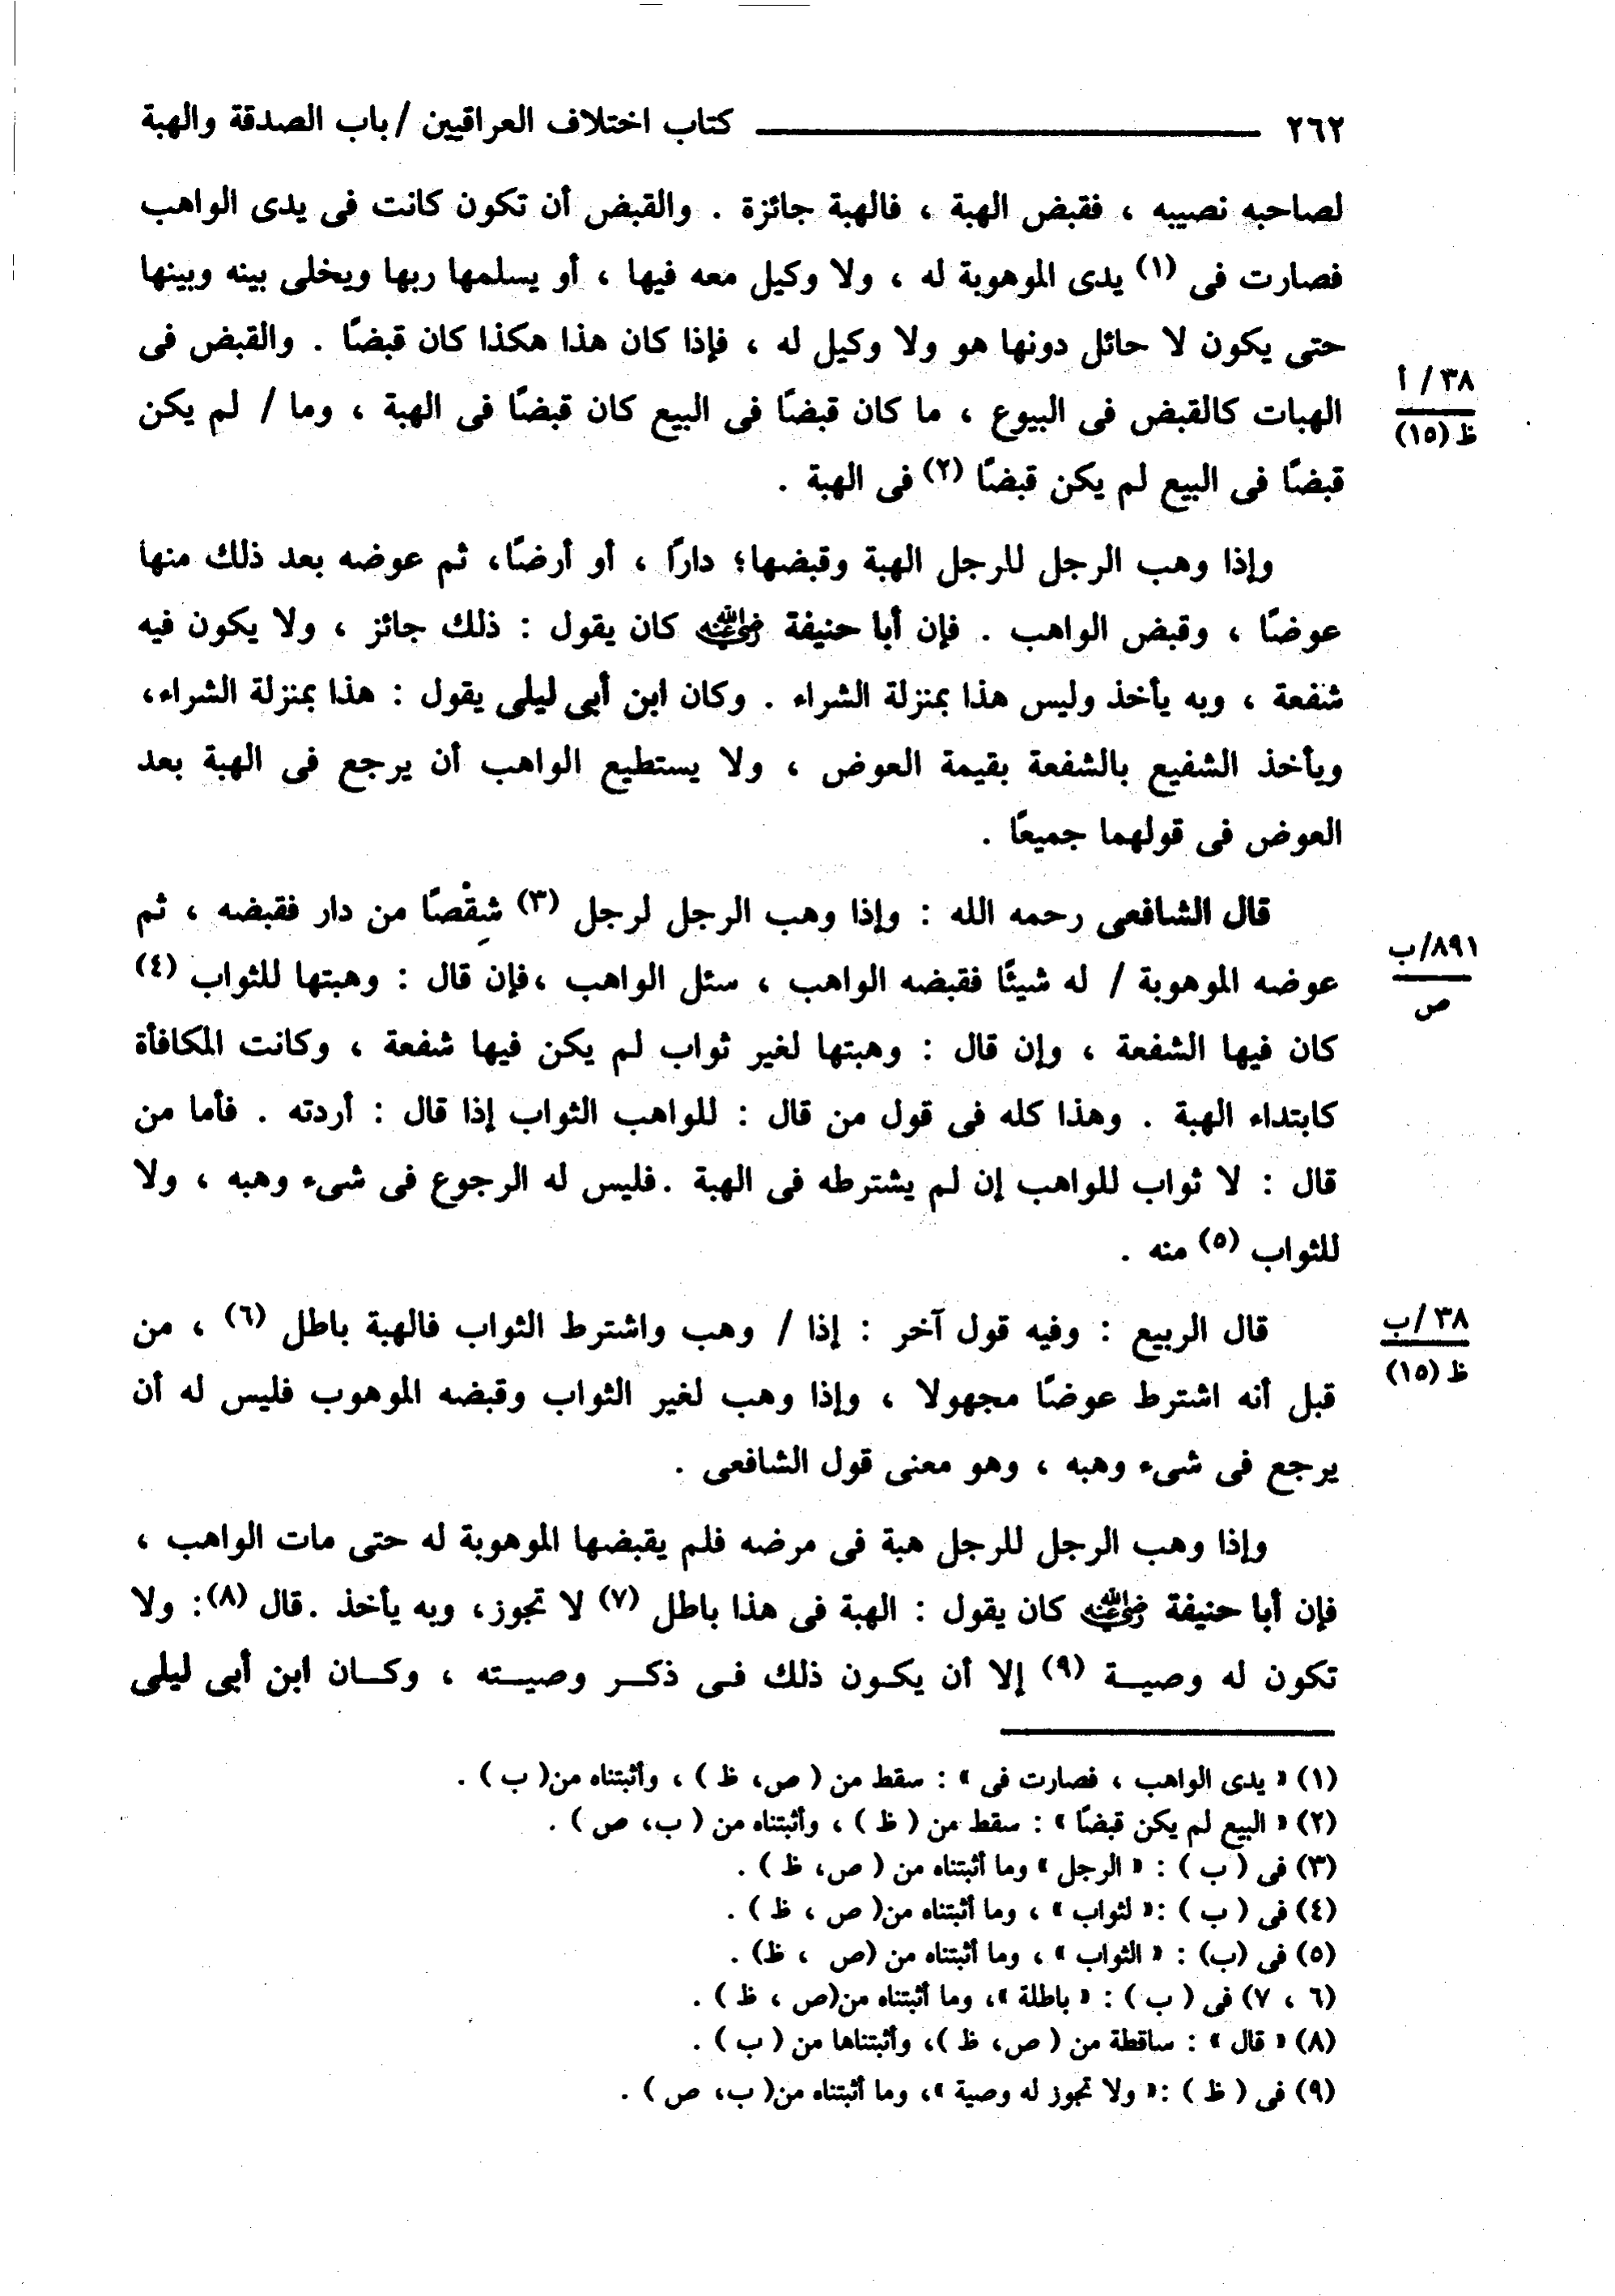 ٢٦٢ كتاب اختلاف العراقيين / باب الصدقة والهبة
لصاحبه نصيبه ، فقبض الهبة ، فالهبة جائزة . والقبض أن تكون كانت فى يدى الواهب
فصارت فى (١) يدى الموهوبة له ، ولا وكيل معه فيها ، أو يسلمها ربها ويخلى بينه وبينها
حتى يكون لا حائل دونها هو ولا وكيل له ، فإذا كان هذا هكذا كان قبضًا . والقبض فى
٣٨ / أ
الهبات كالقبض فى البيوع ، ما كان قبضًا فى البيع كان قبضًا فى الهبة ، وما / لم يكن
ظ (١٥)
قبضًا فى البيع لم يكن قبضًا (٢) فى الهبة .
وإذا وهب الرجل للرجل الهبة وقبضها؛ دارًا ، أو أرضًا، ثم عوضه بعد ذلك منها
عوضًا ، وقبض الواهب . فإن أبا حنيفة رضي الله عنه كان يقول : ذلك جائز ، ولا يكون فيه
شفعة ، وبه يأخذ وليس هذا بمنزلة الشراء . وكان ابن أبى ليلى يقول : هذا بمنزلة الشراء،
ويأخذ الشفيع بالشفعة بقيمة العوض ، ولا يستطيع الواهب أن يرجع فى الهبة بعد
العوض فى قولهما جميعًا .
قال الشافعى رحمه الله : وإذا وهب الرجل لرجل (٣) شِقْصًا من دار فقبضه ، ثم
٨٩١/ب
عوضه الموهوبة / له شيئًا فقبضه الواهب ، سئل الواهب ،فإن قال : وهبتها للثواب (٤)
ص
كان فيها الشفعة ، وإن قال : وهبتها لغير ثواب لم يكن فيها شفعة ، وكانت المكافأة
كابتداء الهبة . وهذا كله فى قول من قال : للواهب الثواب إذا قال : أردته . فأما من
قال : لا ثواب للواهب إن لم يشترطه فى الهبة .فليس له الرجوع فى شىء وهبه ، ولا
للثواب (٥) منه .
قال الربيع : وفيه قول آخر : إذا / وهب واشترط الثواب فالهبة باطل (٦) ، من
٣٨/ب
ظ (١٥)
قبل أنه اشترط عوضًا مجهولا ، وإذا وهب لغير الثواب وقبضه الموهوب فليس له أن
يرجع فى شىء وهبه ، وهو معنى قول الشافعى .
وإذا وهب الرجل للرجل هبة فى مرضه فلم يقبضها الموهوبة له حتى مات الواهب ،
فإن أبا حنيفة رضي الله عنه كان يقول : الهبة فى هذا باطل (٧) لا تجوز، وبه يأخذ .قال (٨): ولا
تكون له وصيـة (٩) إلا أن يكـون ذلك فـى ذكـر وصيـته ، وكـان ابن أبى ليلى
(١) « يدى الواهب ، فصارت فى » : سقط من ( ص، ظ ) ، وأثبتناه من( ب ) .
(٢) « البيع لم يكن قبضًا » : سقط من ( ظ ) ، وأثبتناه من ( ب، ص ) .
(٣) فى ( ب ) : « الرجل » وما أثبتناه من ( ص، ظ ) .
(٤) فى ( ب ) :« لثواب » ، وما أثبتناه من( ص ، ظ ) .
(٥) فى (ب) : « الثواب » ، وما أثبتناه من (ص ، ظ) .
(٦ ، ٧) فى ( ب ) : « باطلة »، وما أثبتناه من(ص ، ظ ) .
(٨) « قال » : ساقطة من ( ص، ظ )، وأثبتناها من ( ب ) .
(٩) فى ( ظ ) :« ولا تجوز له وصية »، وما أثبتناه من( ب، ص ) .